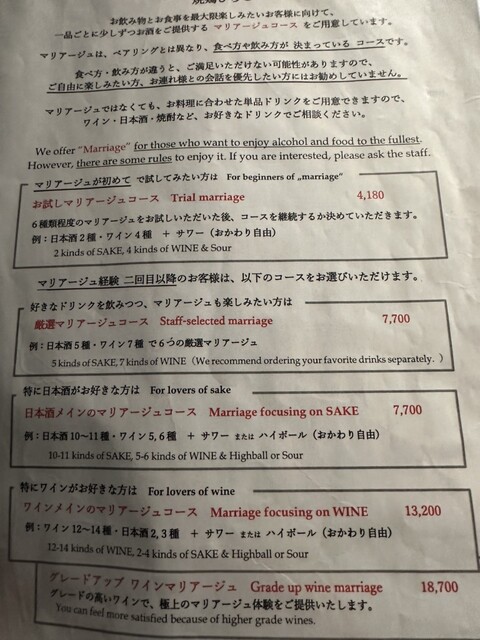 お飲み物とお食事を最大限楽しみたいお客様に向けて、
一品ごとに少しずつお酒をご提供する マリアージュコース をご用意しています。
マリアージュは、ペアリングとは異なり、食べ方や飲み方が 決まっている コースです。
食べ方・飲み方が違うと、ご満足いただけない可能性がありますので、
ご自由に楽しみたい方、お連れ様との会話を優先したい方にはお勧めしていません。
マリアージュではなくても、お料理に合わせた単品ドリンクをご用意できますので、
ワイン・日本酒・焼酎など、お好きなドリンクでご相談ください。
We offer "Marriage" for those who want to enjoy alcohol and food to the fullest.
However, there are some rules to enjoy it. If you are interested, please ask the staff.
マリアージュが初めて で試してみたい方は For beginners of „marriage"
お試しマリアージュコース Trial marriage 4,180
6種類程度のマリアージュをお試しいただいた後、コースを継続するか決めていただきます。
例：日本酒2種・ワイン4種 ＋ サワー（おかわり自由）
2 kinds of SAKE, 4 kinds of WINE & Sour
マリアージュ経験 二回目以降のお客様は、以下のコースをお選びいただけます。
好きなドリンクを飲みつつ、マリアージュも楽しみたい方は
厳選マリアージュコース Staff-selected marriage 7,700
例：日本酒5種・ワイン7種 で6つの厳選マリアージュ
5 kinds of SAKE, 7 kinds of WINE（We recommend ordering your favorite drinks separately.）
特に日本酒がお好きな方は For lovers of sake
日本酒メインのマリアージュコース Marriage focusing on SAKE 7,700
例：日本酒10〜11種・ワイン5,6種 ＋ サワー または ハイボール（おかわり自由）
10-11 kinds of SAKE, 5-6 kinds of WINE & Highball or Sour
特にワインがお好きな方は For lovers of wine
ワインメインのマリアージュコース Marriage focusing on WINE 13,200
例：ワイン12〜14種・日本酒2,3種 ＋ サワー または ハイボール（おかわり自由）
12-14 kinds of WINE, 2-4 kinds of SAKE & Highball or Sour
グレードアップ ワインマリアージュ Grade up wine marriage 18,700
グレードの高いワインで、極上のマリアージュ体験をご提供いたします。
You can feel more satisfied because of higher grade wines.